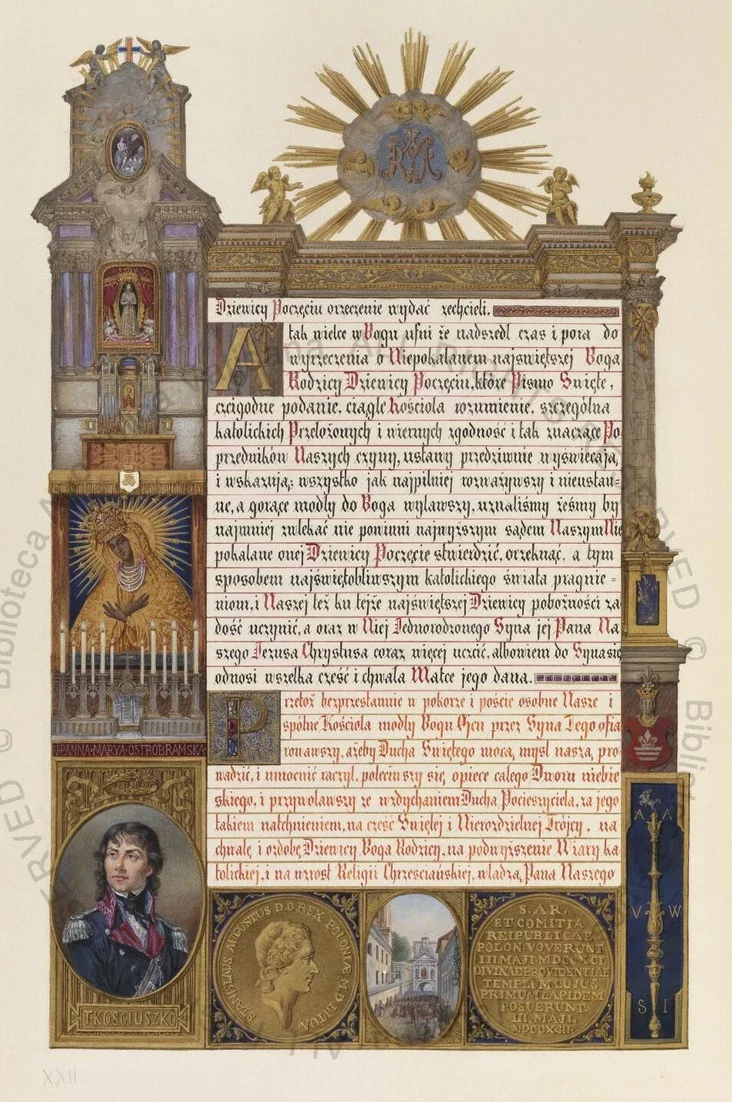 Dziewicy Poczęciu orzeczenie wydać zechcieli.
A tak wielce w Bogu ufni że nadszedł czas i pora do
wyrzeczenia o Niepokalanem najświętszej Boga
Rodzicy Dziewicy Poczęciu, które Pismo Święte,
czcigodne podanie, ciągłe Kościoła rozumienie, szczególna
katolickich Przełożonych i wiernych zgodność i tak znaczące Po
przedników Naszych czyny, ustawy przedziwnie wyświecają,
i wskazują; wszystko jak najpilniej rozważywszy i nieustan=
ne, a gorące modły do Boga wylawszy, uznaliśmy żeśmy by
najmniej zwlekać nie powinni najwyższym sądem Naszym Nie
pokalane onej Dziewicy Poczęcie stwierdzić, orzeknąć, a tym
sposobem najświętobliwszym katolickiego świata pragnie=
niom, i Naszej też ku tejże najświętszej Dziewicy pobożności za
dość uczynić, a oraz w Niej Jednorodzonego Syna jej Pana Na
szego Jezusa Chrystusa coraz więcej uczcić, albowiem do Syna się
odnosi wszelka cześć i chwała Matce jego dana.
Przetoż bezprzestannie w pokorze i poście osobne Nasze i
spólne Kościoła modły Bogu Ojcu przez Syna Tego ofia
rowawszy, ażeby Ducha Świętego mocą, myśl naszą, pro
wadzić, i umocnić raczył, poleciwszy się, opiece całego Dworu niebie
skiego, i przywoławszy ze wzdychaniem Ducha Pocieszyciela, za jego
takiem natchnieniem, na cześć Świętej i Nierozdzielnej Trójcy, na
chwałę i ozdobę Dziewicy Boga Rodzicy, na podwyższenie Wiary ka
tolickiej, i na wzrost Religii Chrześciańskiej, władzą, Pana Naszego
N. PANNA • MARYA • OSTROBRAMSKA
T. KOSCIUSZKO
STANISLAUS AUGUSTUS D.G. REX POLONIÆ M.D. LITUA.
S. A. R.
ET COMITIA
REIPUBLICAE
POLON. VOVERUNT
III MAJI. MDCCXCI
DIVINAE PROVIDENTIAE
TEMPLUM CUJUS
PRIMUM LAPIDEM
POSUERUNT.
III. MAJI.
MDCCXCII.
A A
V W
S I
XXII